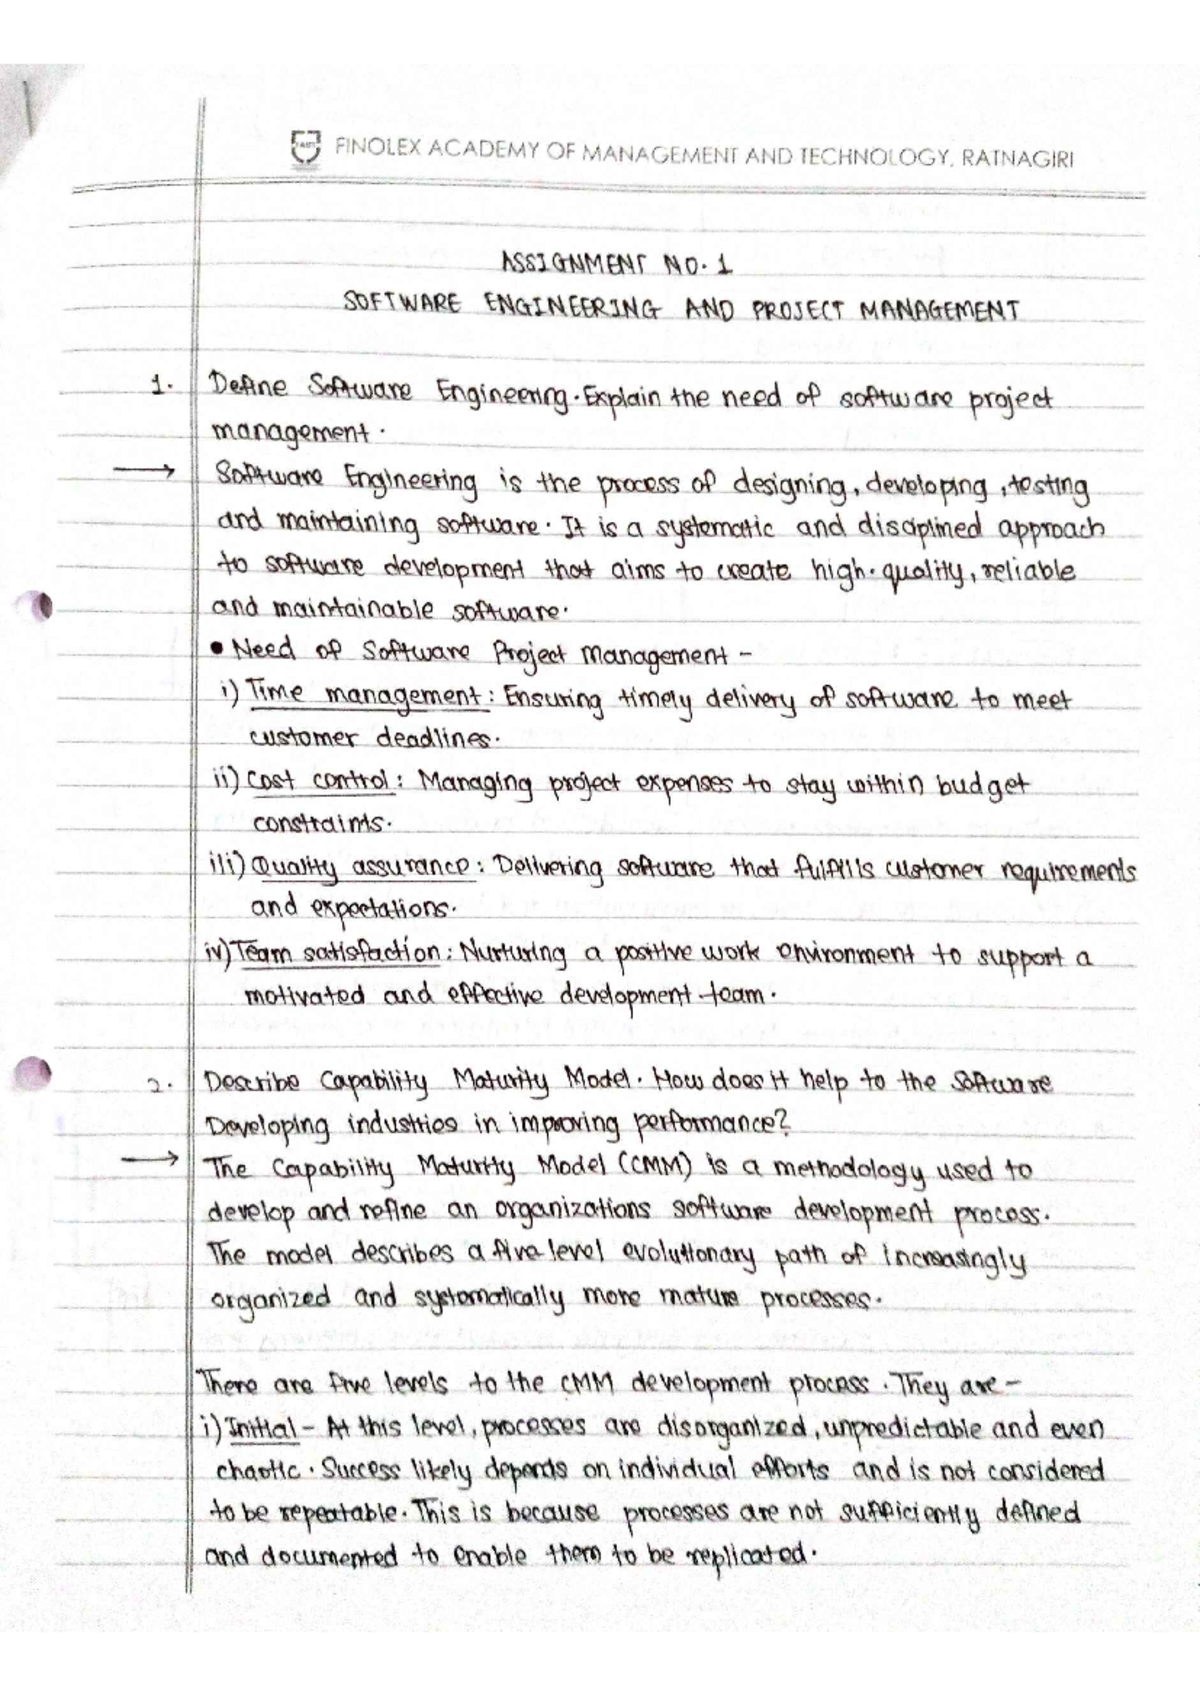 FINOLEX ACADEMY OF MANAGEMENT AND TECHNOLOGY, RATNAGIRI
ASSIGNMENT NO. 1
SOFTWARE ENGINEERING AND PROJECT MANAGEMENT
1. Define Software Engineering. Explain the need of software project
management.
→ Software Engineering is the process of designing, developing, testing
and maintaining software. It is a systematic and disciplined approach
to software development that aims to create high-quality, reliable
and maintainable software.
• Need of Software Project Management -
i) Time management: Ensuring timely delivery of software to meet
customer deadlines.
ii) Cost control: Managing project expenses to stay within budget
constraints.
iii) Quality assurance: Delivering software that fulfills customer requirements
and expectations.
iv) Team satisfaction: Nurturing a positive work environment to support a
motivated and effective development team.
2. Describe Capability Maturity Model. How does it help to the Software
Developing industries in improving performance?
→ The Capability Maturity Model (CMM) is a methodology used to
develop and refine an organizations software development process.
The model describes a five-level evolutionary path of increasingly
organized and systematically more mature processes.
There are five levels to the CMM development process. They are -
i) Initial - At this level, processes are disorganized, unpredictable and even
chaotic. Success likely depends on individual efforts and is not considered
to be repeatable. This is because processes are not sufficiently defined
and documented to enable them to be replicated.